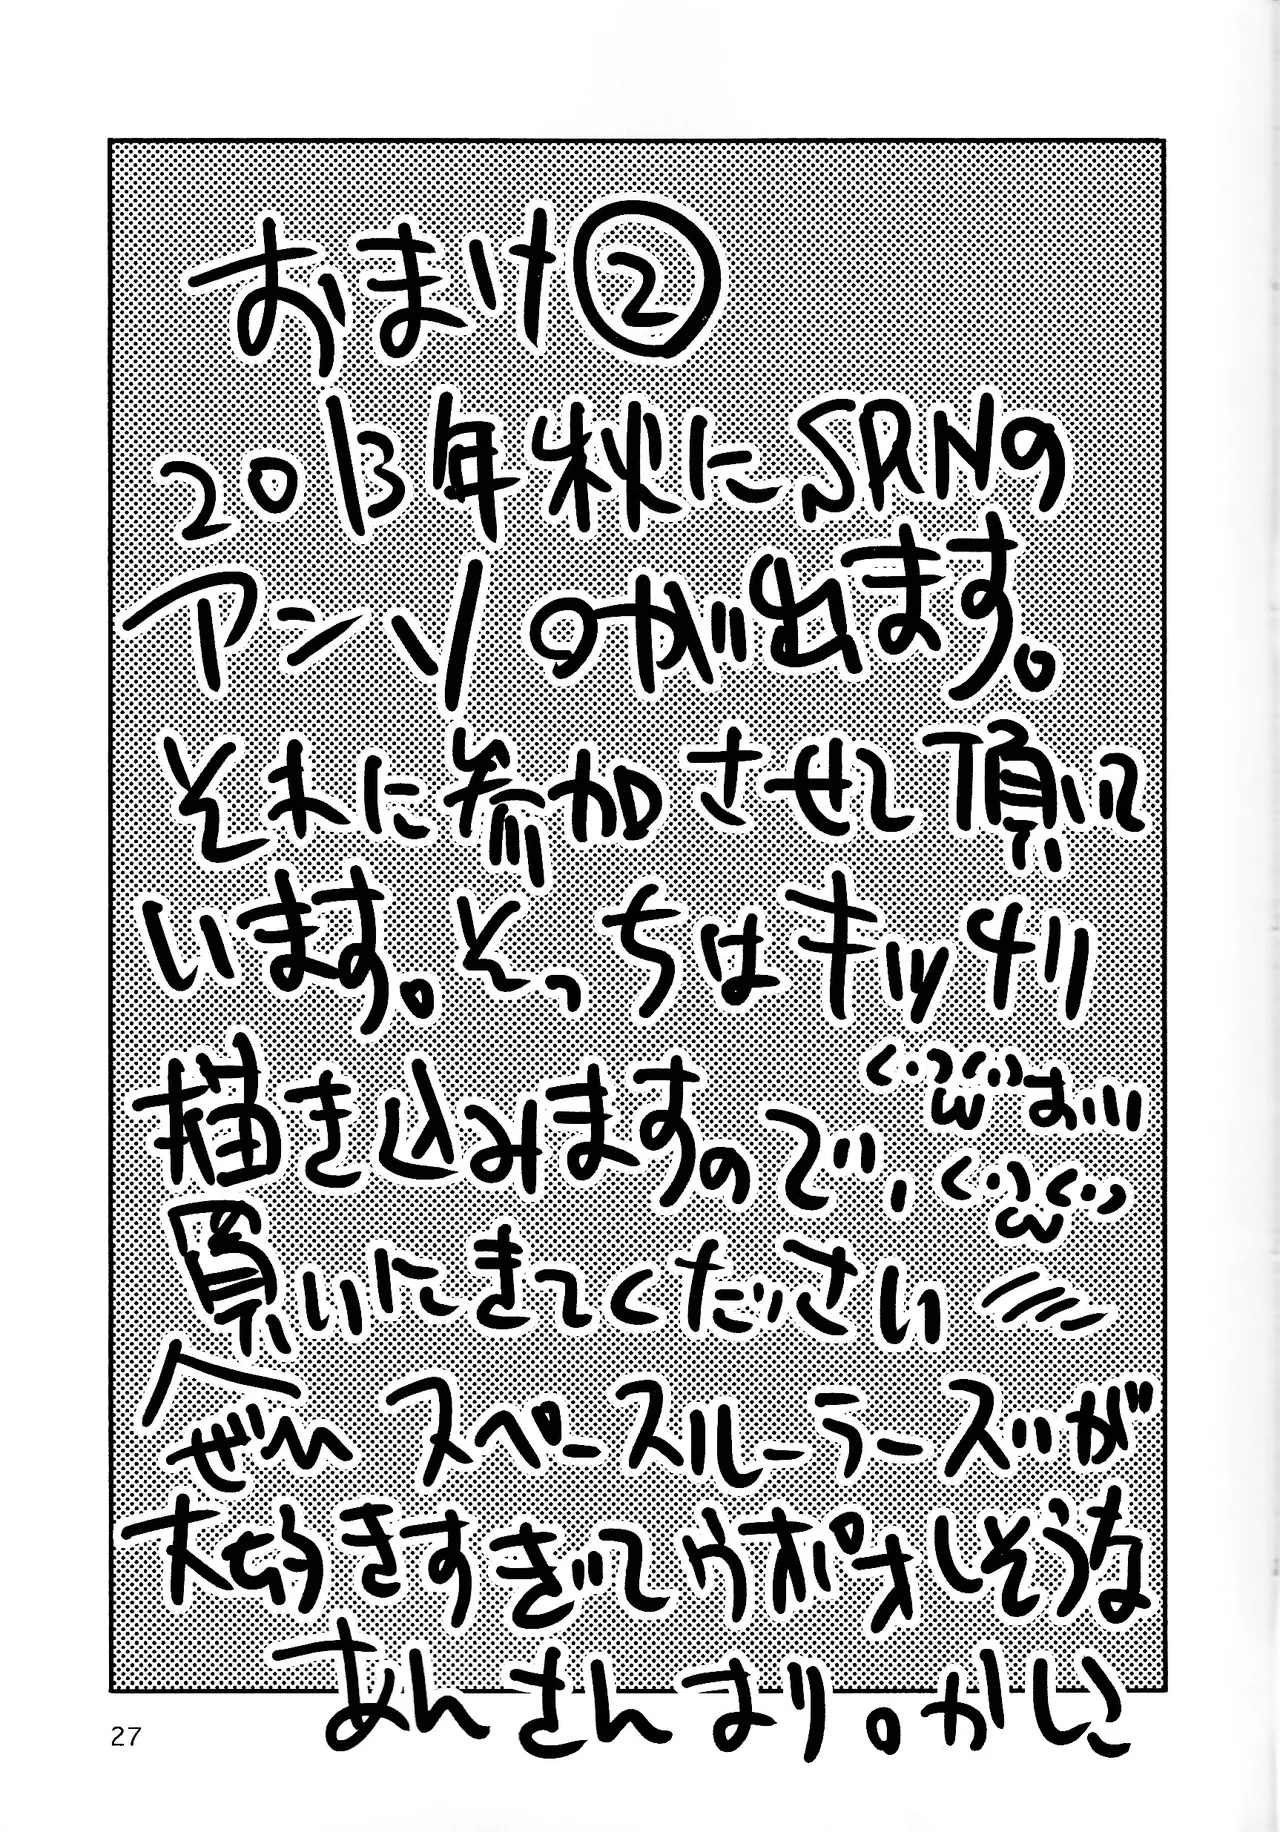 おまけ②
2013年秋にSRNの
アンソのが出ます。
それに参加させて頂いて
います。そっちはキッチリ
描き込みますので、
お
買いにきてくださいい
ぜひ スペースルーラーズが
大好きすぎてウポオしそうな
あんさんより。かしこ
27